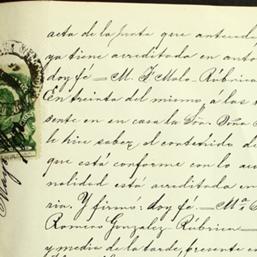 acta de la junta que antecede
ya tiene acreditada en auto
doy fe — M. F. Malo. Rúbrica
En treinta del mismo, a las
sente en su casa la Sra. Doña
le hice saber el contenido de
que está conforme con lo ac
nalidad está acreditada en
ria. Y firmó: doy fe. — Ma.
Romero González. Rúbrica —
y media de la tarde, presente en